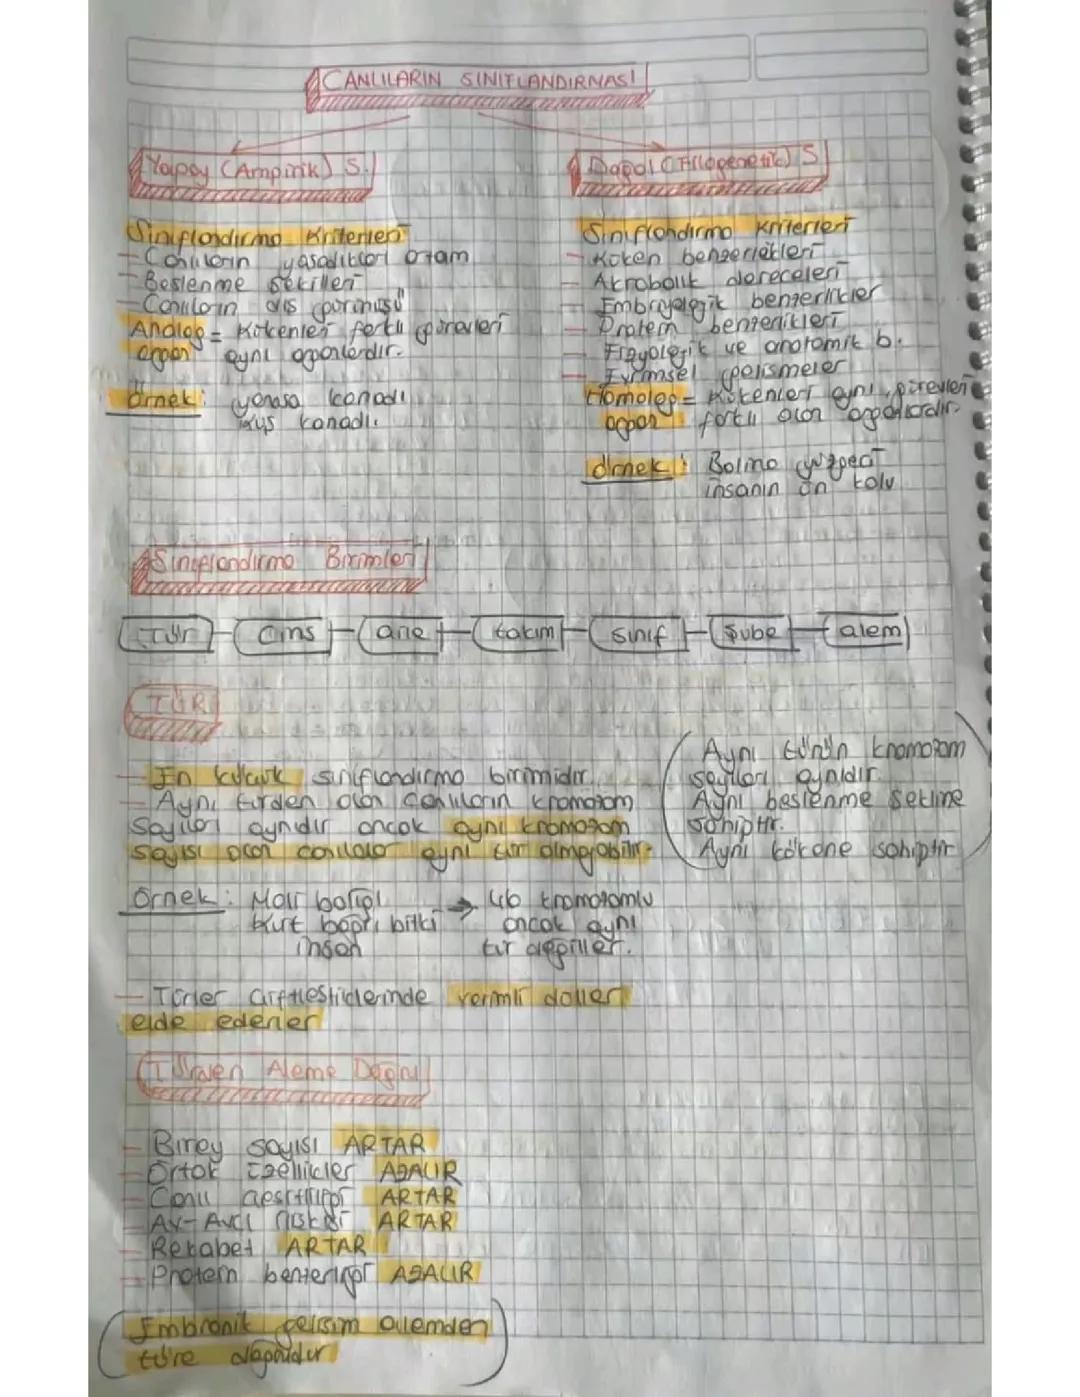 CANLILARIN SINIFLANDIRMASI
Yapay (Ampirik) S.
Sınıflandırma Kriterleri
- Canlıların yaşadıkları ortam
- Beslenme şekilleri
- Canlıların dış görünüşü
Analog = Kökenleri farklı görevleri
organ aynı organlardır.
Örnek: yarasa kanadı
kuş kanadı.
Doğal (Filogenetik) S
Sınıflandırma Kriterleri
- Köken benzerlikleri
- Akrabalık dereceleri
- Embriyolojik benzerlikler
- Protein benzerlikleri
- Fizyolojik ve anatomik b.
- Evrimsel gelişmeler
Homolog = Kökenleri aynı, görevleri
organ farklı olan organlardır.
örnek: Balina yüzgeci
insanın ön kolu
Sınıflandırma Birimleri
Tür - Cins - aile - takım - sınıf - şube - alem
TÜR
- En küçük sınıflandırma birimidir.
- Aynı türden olan canlıların kromozom
sayıları aynıdır ancak aynı kromozom
sayısı olan canlılar aynı tür olmayabilir.
Aynı türün kromozom
sayıları aynıdır
Aynı beslenme şekline
sahiptir.
Aynı kökene sahiptir
Örnek: Moli balığı → 46 kromozomlu
Kurt bağrı bitki ancak aynı
insan tür değiller.
- Türler çiftleştiklerinde verimli döller
elde ederler
Türden Aleme Doğru
- Birey sayısı ARTAR
- Ortak özellikler AZALIR
- Canlı çeşitliliği ARTAR
- Av-Avcı ilişkisi ARTAR
- Rekabet ARTAR
- Protein benzerliği AZALIR
Embronik gelişim alemden
türe doğrudur